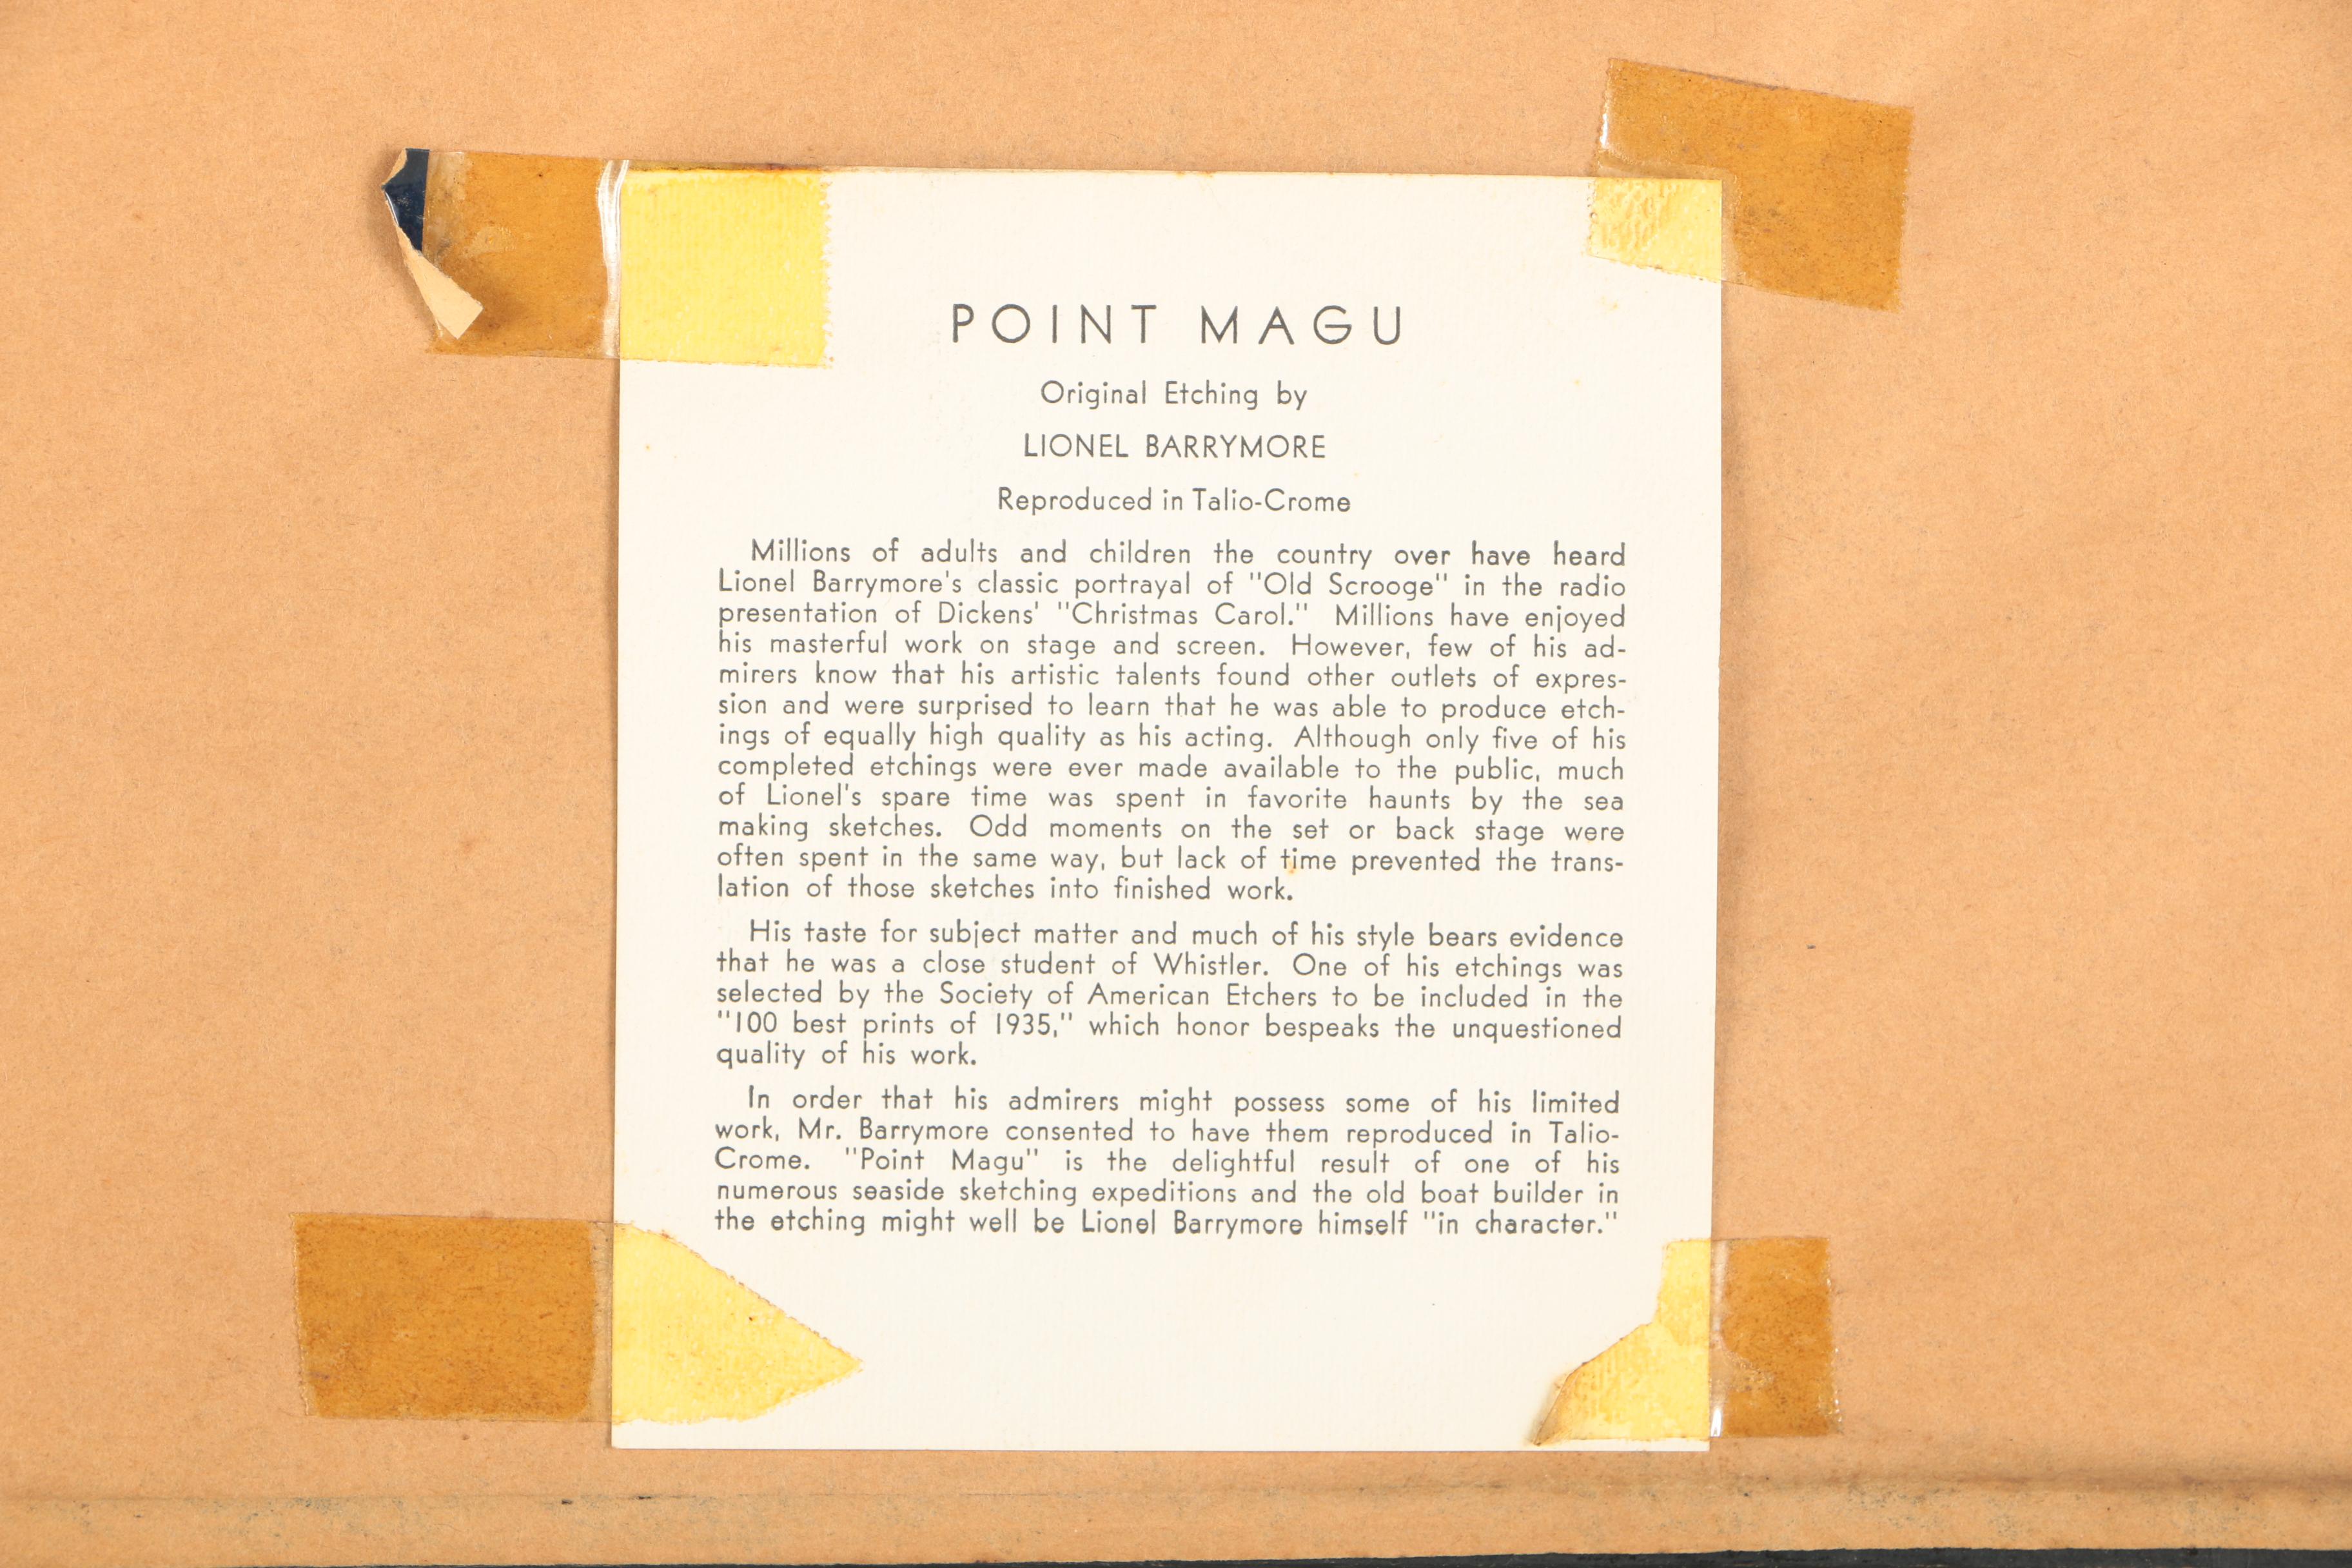 POINT MAGU
Original Etching by
LIONEL BARRYMORE
Reproduced in Talio-Crome
Millions of adults and children the country over have heard
Lionel Barrymore's classic portrayal of "Old Scrooge" in the radio
presentation of Dickens' "Christmas Carol." Millions have enjoyed
his masterful work on stage and screen. However, few of his ad-
mirers know that his artistic talents found other outlets of expres-
sion and were surprised to learn that he was able to produce etch-
ings of equally high quality as his acting. Although only five of his
completed etchings were ever made available to the public, much
of Lionel's spare time was spent in favorite haunts by the sea
making sketches. Odd moments on the set or back stage were
often spent in the same way, but lack of time prevented the trans-
lation of those sketches into finished work.
His taste for subject matter and much of his style bears evidence
that he was a close student of Whistler. One of his etchings was
selected by the Society of American Etchers to be included in the
"100 best prints of 1935," which honor bespeaks the unquestioned
quality of his work.
In order that his admirers might possess some of his limited
work, Mr. Barrymore consented to have them reproduced in Talio-
Crome. "Point Magu" is the delightful result of one of his
numerous seaside sketching expeditions and the old boat builder in
the etching might well be Lionel Barrymore himself "in character."